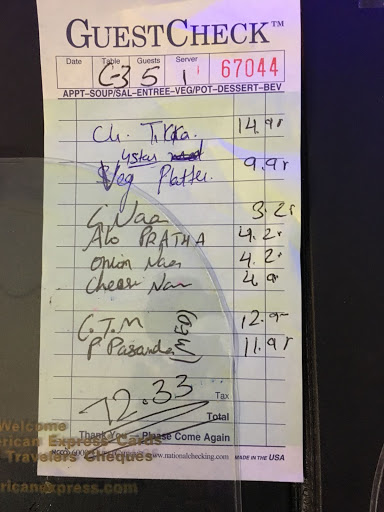 GUESTCHECK™
Date Table Guests Server
C-3 5 1 67044
APPT-SOUP/SAL-ENTREE-VEG/POT-DESSERT-BEV
Ch. Tikka. 14.95
4 star
Veg Platter. 9.95
G Naan 3.25
Alo PRATHA 4.25
Onion Naan 4.25
Cheese Nan 4.95
C.T.M 12.95
P Pasanda 11.95
72.33
Tax
Total
Thank You - Please Come Again
www.nationalchecking.com MADE IN THE USA
Welcome
American Express Cards
Travelers Cheques
americanexpress.com